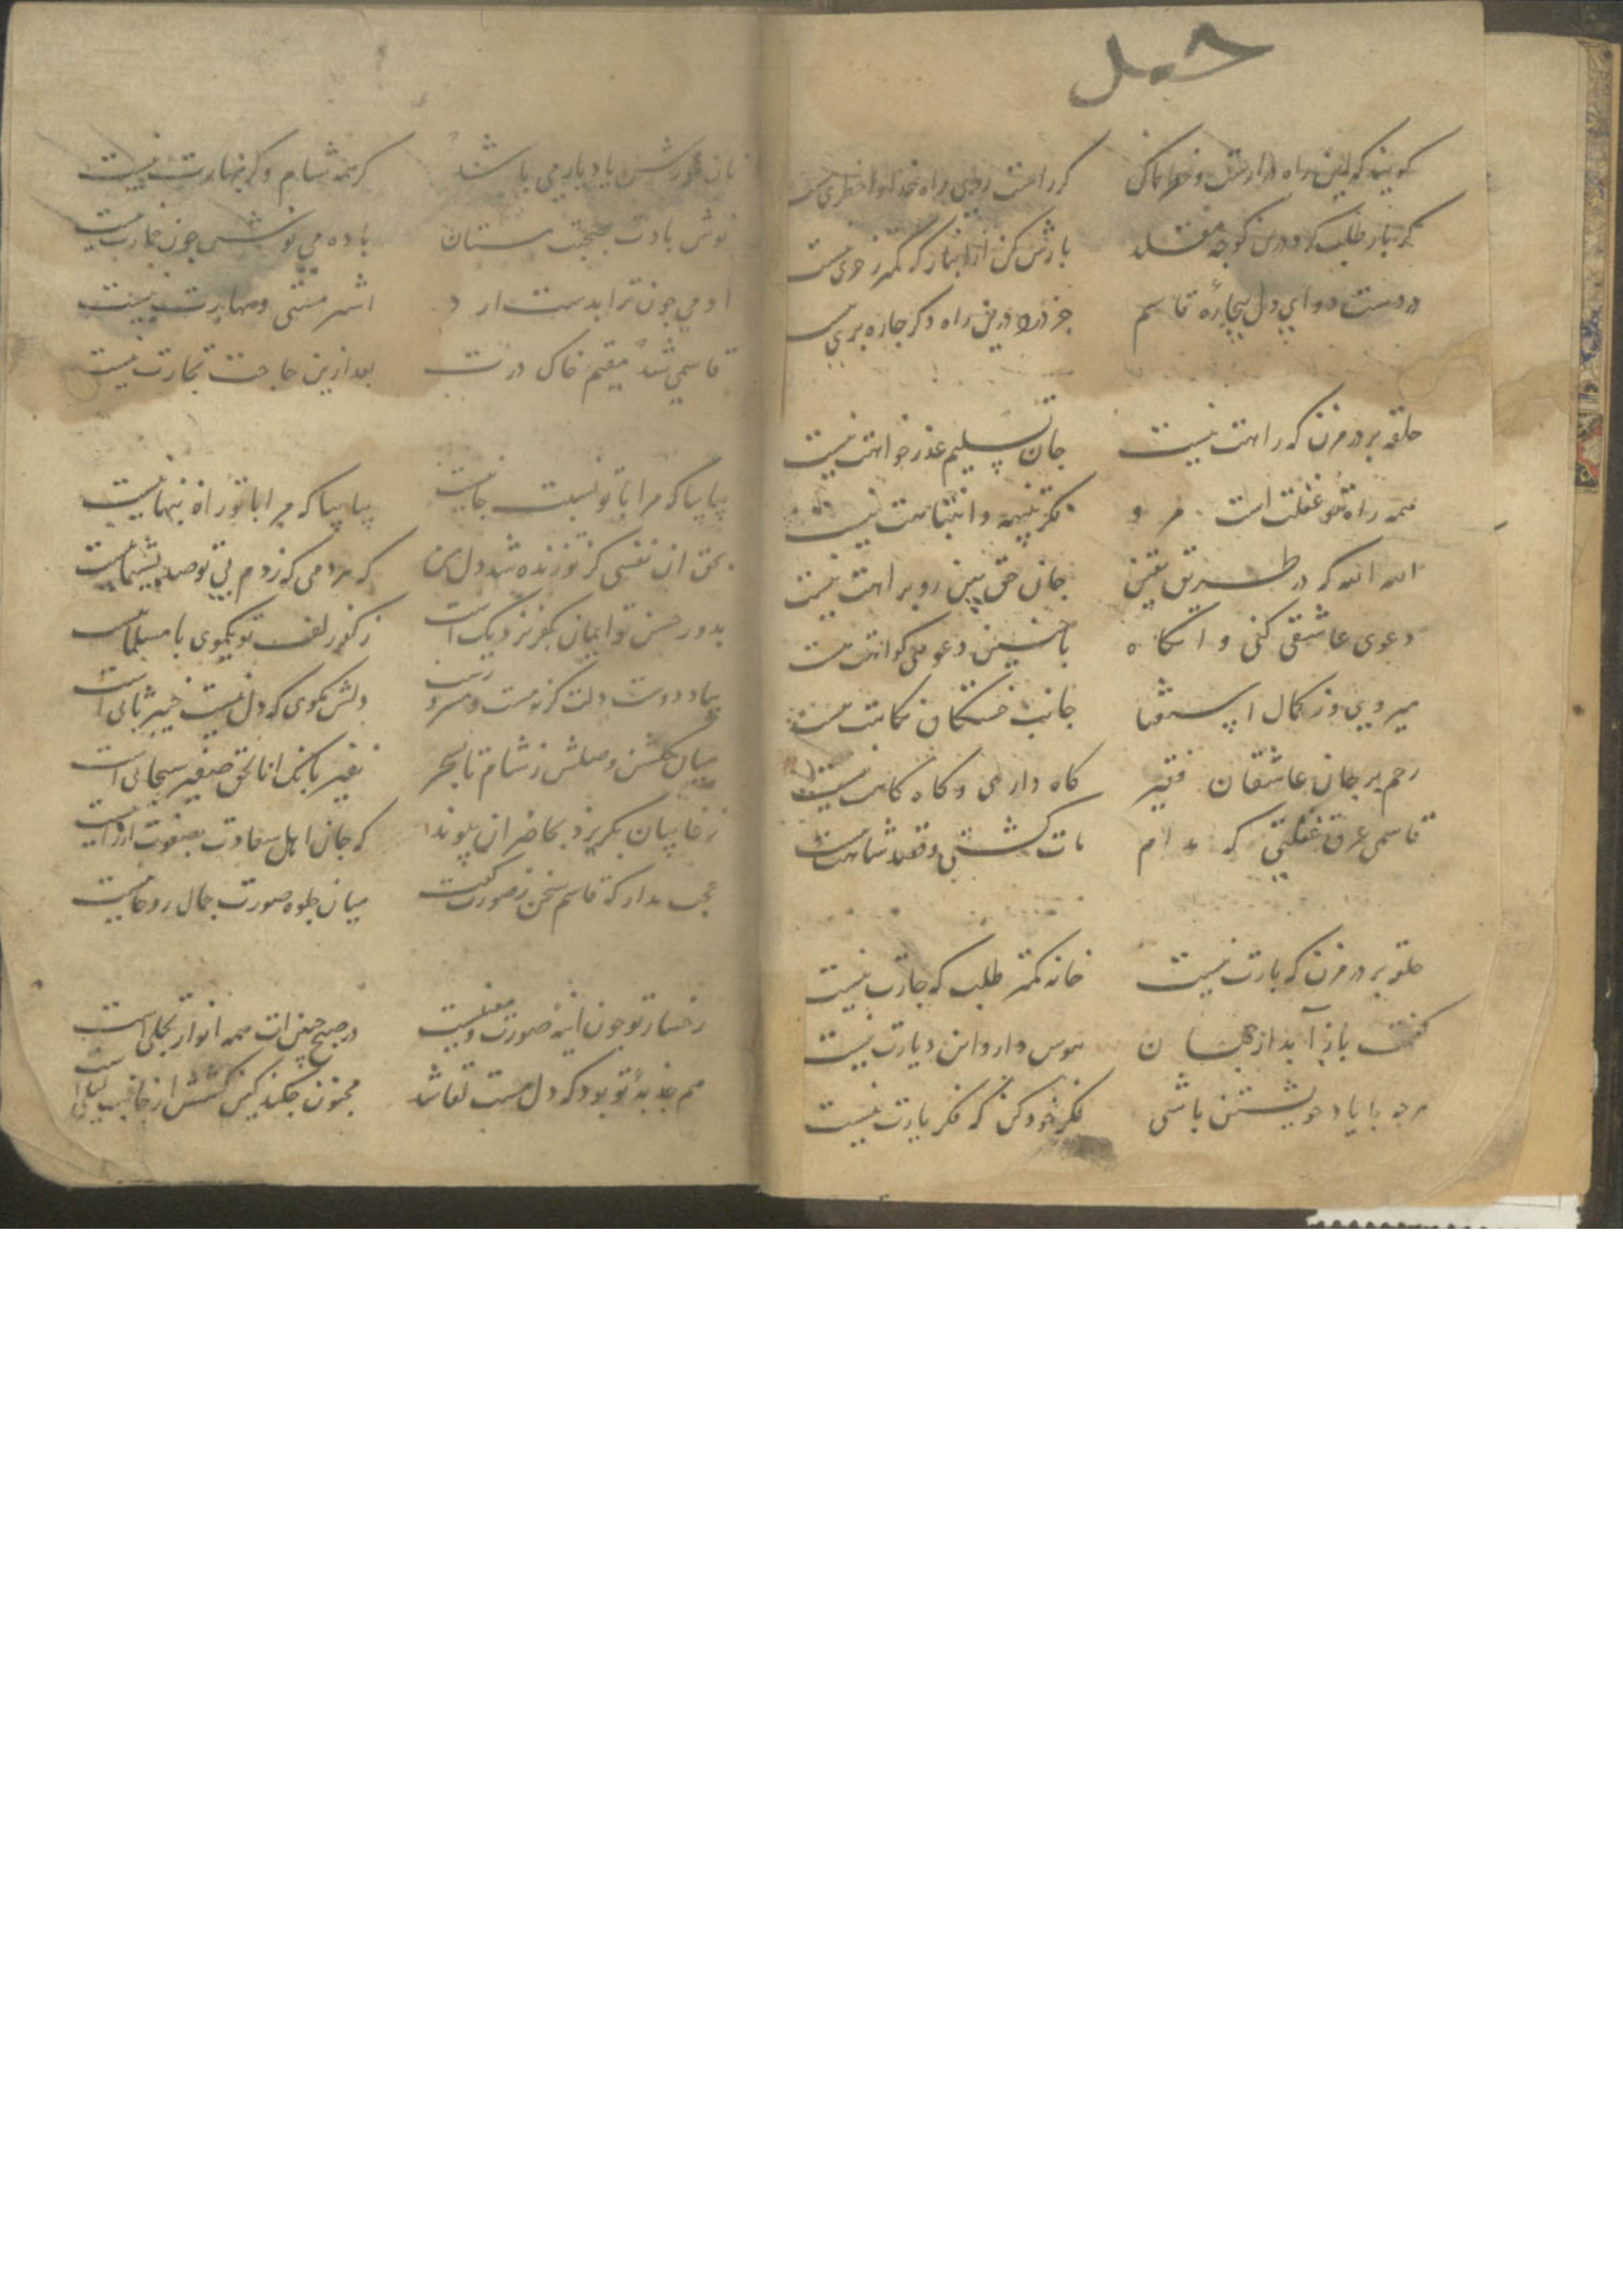 حمل
گویند که این راه دراز است و خطرناک گر راست روی راه خدا را خطری نیست
گر بار طلب کرد درین کوچه مقلد بارش کن ازین بار که کمتر ز خری نیست
دردست دوای دل بیچاره قاسم جز درد درین راه دگر چاره بری نیست
حلقه بر در مزن که راهت نیست جان تسلیم عذر خواهت نیست
همه راه تو غفلت است مرو فکر تنبیه و انتباهت نیست
الله الله که در طریق یقین جان حق بین رو براهت نیست
دعوی عاشقی کنی و انگاه با چنین دعوی گواهت نیست
میروی وز کمال استغنا جانب خستگان نگاهت نیست
رحم بر جان عاشقان فقیر گاه داری و گاه گاهت نیست
قاسمی غرق غفلتی که مدام مات گشتی و قصد شاهت نیست
حلقه بر در مزن که بارت نیست خانه کمتر طلب که جارت نیست
گفت باز آید از هوس دار و این دیارت نیست
هرچه با یاد خویشتن باشی فکر خود کن که فکر یارت نیست
نان خورش یاد یار می باشد گر همه شام و گر نهارت نیست
نوش بادت بصحبت مستان باده می نوش چون خمارت نیست
ادمی چون ترا بدست ارد اشتر مستی و مهارت نیست
قاسمی شد مقیم خاک درت بعد ازین حاجت تجارت نیست
بیا بیا که مرا با تو نسبت جانیست بیا بیا که مرا با تو راه پنهانیست
بحق ان نفسی کز تو زنده شد دل من که هر دمی که زدم بی تو صد پشیمانیست
بدور حسن تو ایمان بکفر نزدیک است ز کفر زلف تو بگوی با مسلمانیست
بیاد دوست دلت گر نه مست دلش مگوی که دل نیست خیبر ثانی است
میان گلشن وصلش ز شام تا بسحر نفیر بانگ انا الحق صفیر سبحانی است
ز غایبان بگریز و بحاضران پیوند که جان اهل سعادت بصفوت ارزانیست
عجب مدار که قاسم سخن ز صورت گفت میان جلوه صورت جمال روحانیست
رخسار تو چون اینه صورت و معنیست در صبح جبین ات همه انوار تجلی است
هم جذبه تو بود که دل مست لقا شد مجنون چکند کین کشش از جانب لیلی است